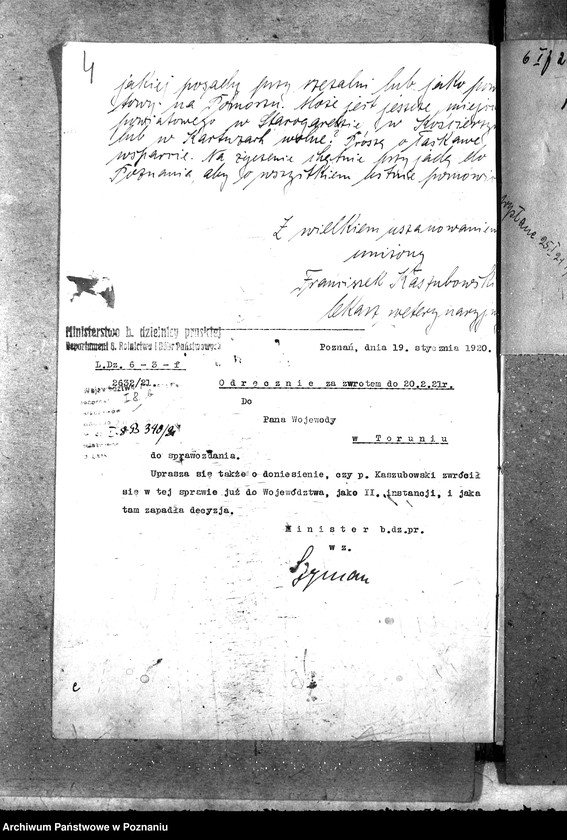 4
jakiej posady przy rzeźalni lub jako pow
towy na Pomorzu. Może jest jeszcze miejsce
powiatowego w Starogardzie, w Kościerzy
lub w Kartuzach wolne? Proszę o łaskawe
wsparcie. Na życzenie chętnie przyjadę do
Poznania, aby o wszystkiem ustnie pomówi
Z wielkiem uszanowaniem
uniżony
Franciszek Kaszubowski
lekarz weterynaryjn
Ministerstwo b. dzielnicy pruskiej
Departament Rolnictwa i Dóbr Państwowych
Poznań, dnia 19. stycznia 1920.
L.Dz. 6 - 3 - f
2632/21
Odręcznie za zwrotem do 20.2.21r.
Do
Pana Wojewody
w Toruniu
do sprawozdania.
Uprasza się także o doniesienie, czy p. Kaszubowski zwrócił
się w tej sprawie już do Województwa, jako II. instancji, i jaka
tam zapadła decyzja.
Minister b.dz.pr.
w z.
Szyman
6 I f 2
Archiwum Państwowe w Poznaniu